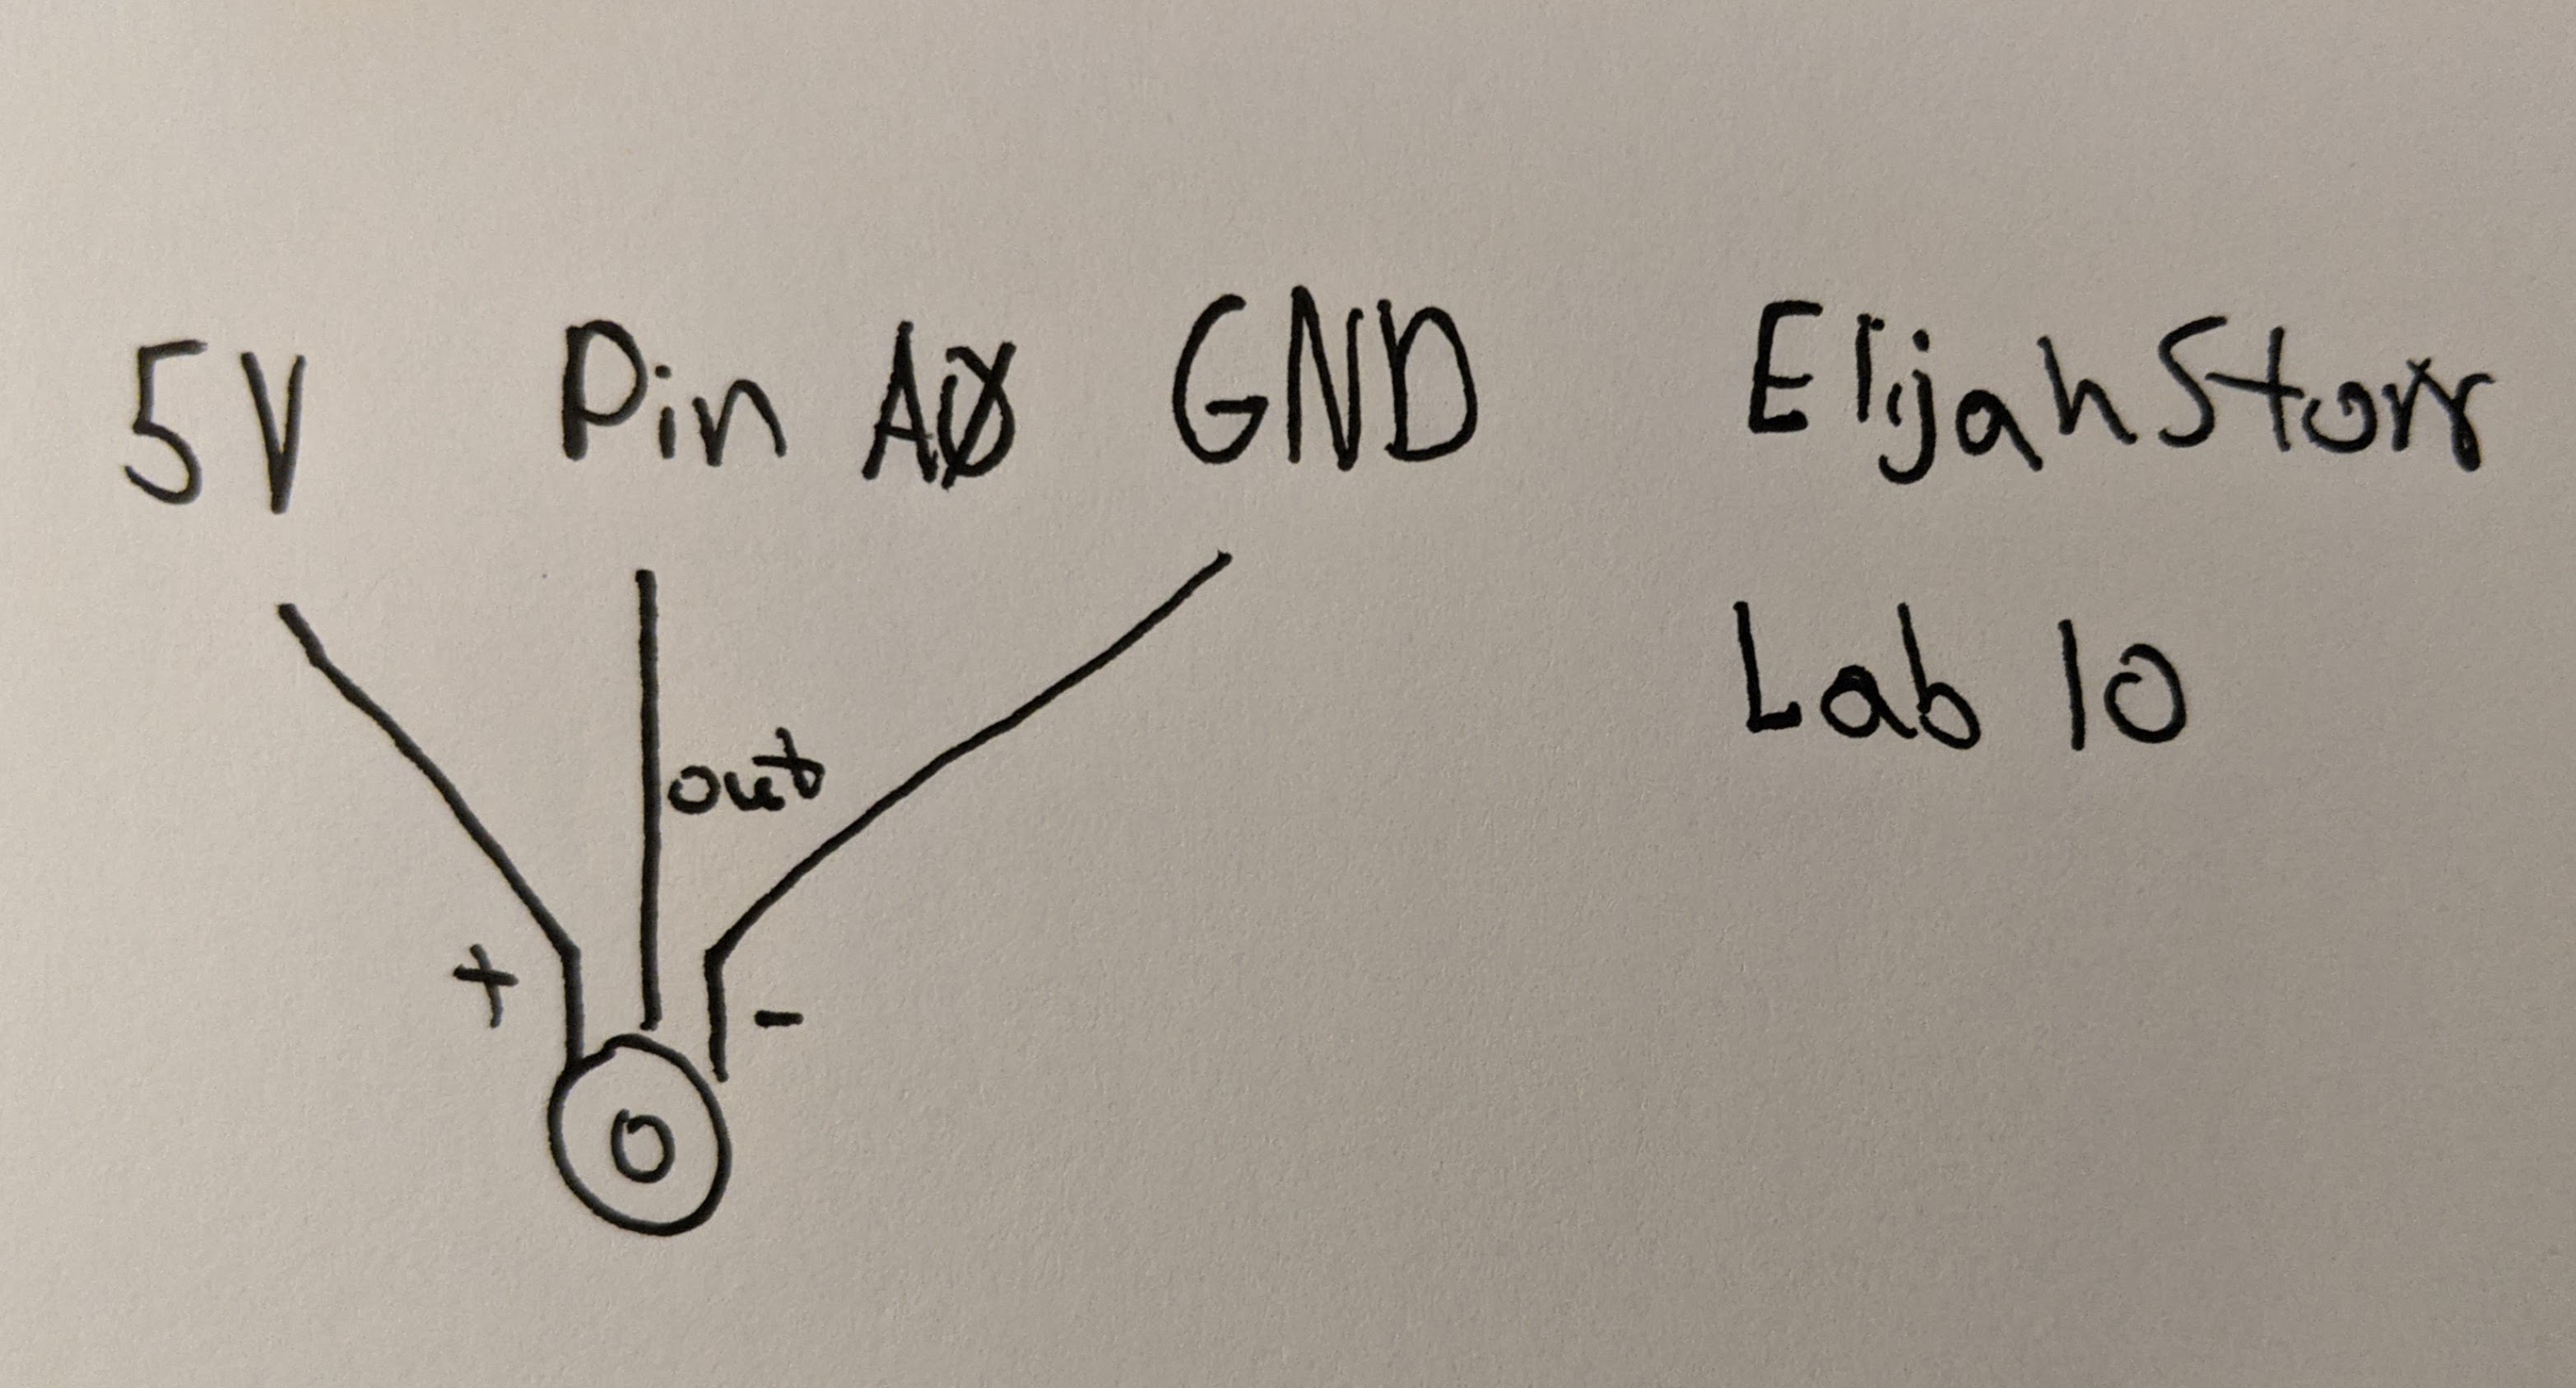 5V Pin AØ GND Elijah Storr
Lab 10
out
+ -